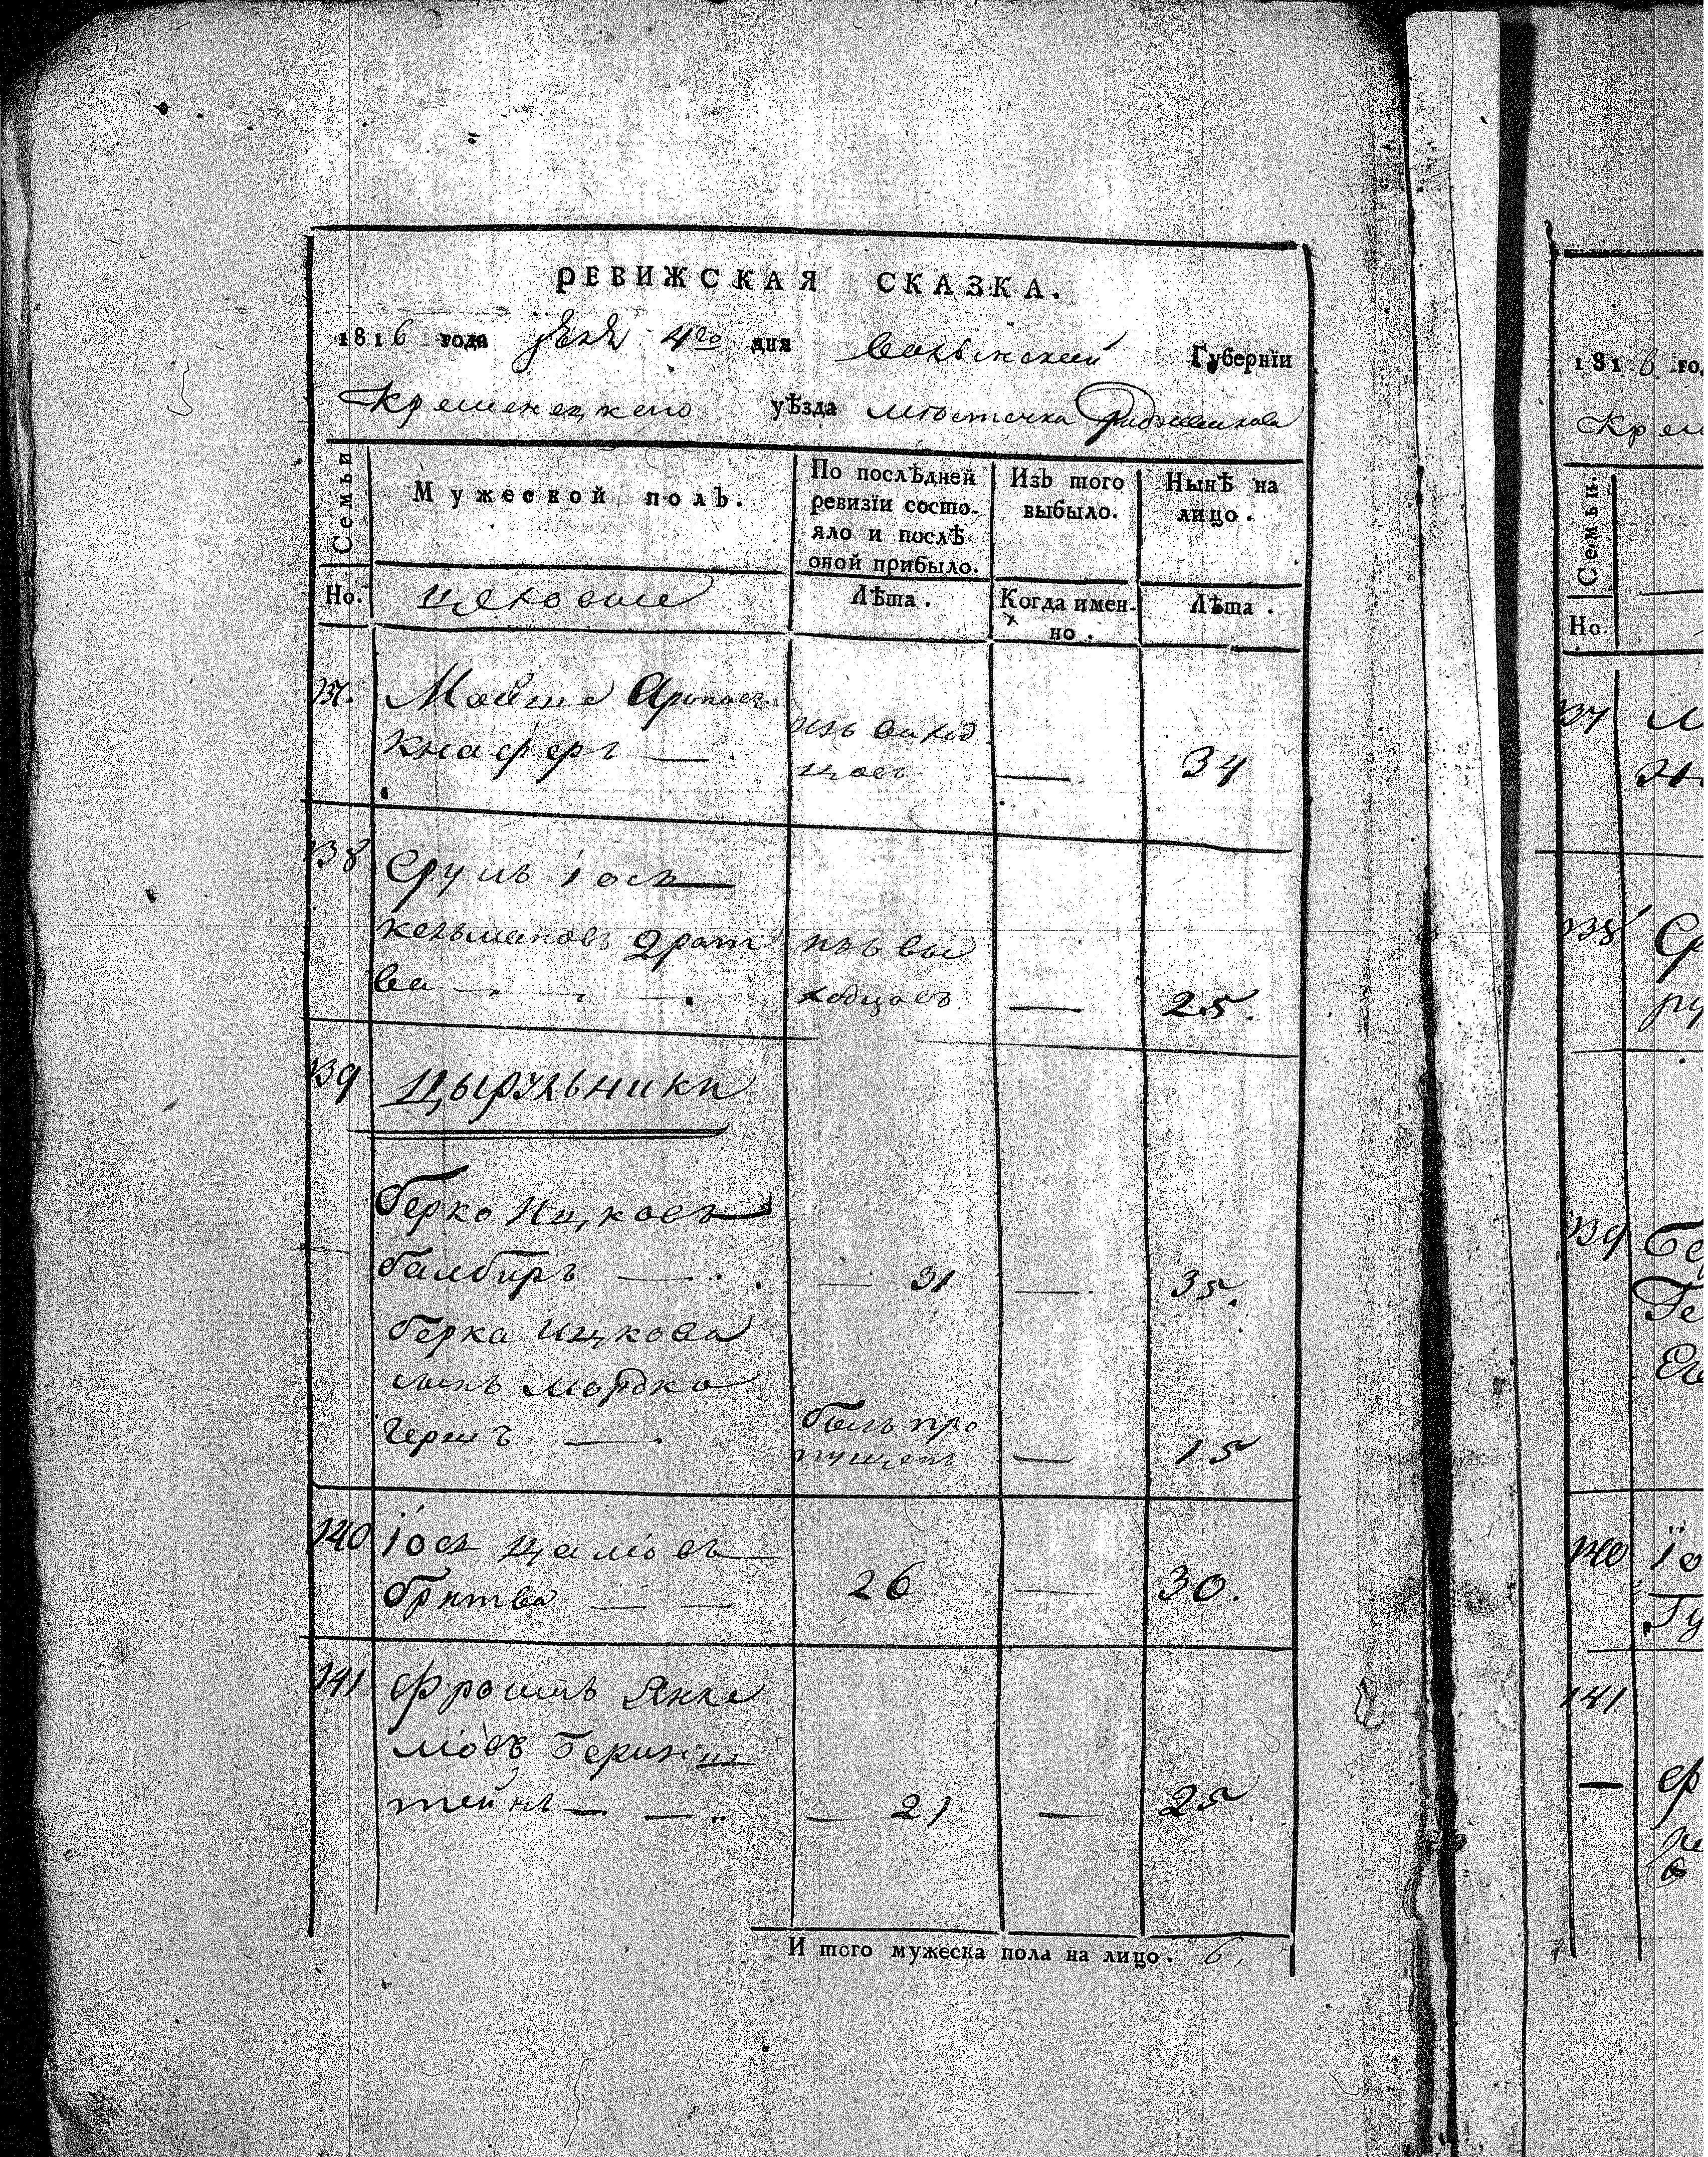 РЕВИЖСКАЯ СКАЗКА.
1816 года 4го дня Волынской Губернїи
Кременецкого уѣзда местечка Радзивилова
Семьи
Мужеской полъ.
По послѣдней ревизїи состо-
яло и послѣ
оной прибыло.
Изъ того
выбыло.
Нынѣ на
лицо.
Но.
цеховые
Лѣта.
Когда имен-
но.
Лѣта.
137.
Мовше Ароновъ
Кнаферъ — .
изъ выход
цовъ
—
34
138
Сруль Іось
Кельмановъ Драт
ва — — —.
изъ вы
ходцовъ
—
25.
139
Цырульники
Берко Ицковъ
балбиръ —
— 31
—
35.
Берка Ицкова
сынъ Мордко
Гершъ —
былъ про
пущенъ
—
15
140
Іось
бритва — —
26
—
30.
141
Фроимъ Янке
левъ
тейнъ — —
— 21
—
25
И того мужеска пола на лицо. 6.
1816 го
Крем
Семьи.
Но.
137
138
139
140
141